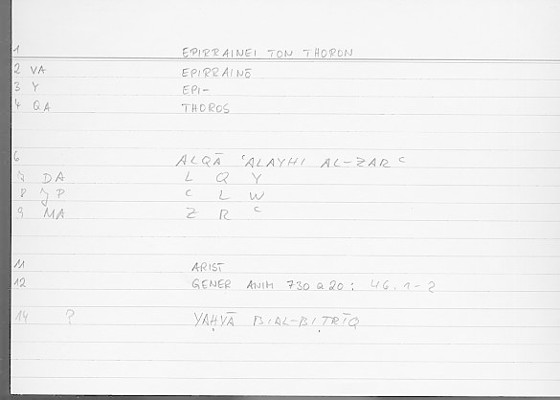 1 EPIRRAINEI TON THORON
2 VA EPIRRAINŌ
3 Y EPI-
4 QA THOROS
6 ALQĀ ʿALAYHI AL-ZARʿ
7 DA L Q Y
8 JP ʿ L W
9 MA Z R ʿ
11 ARIST
12 GENER ANIM 730 a 20 : 46. 1-2
14 ? YAḤYĀ B. AL-BIṬRĪQ